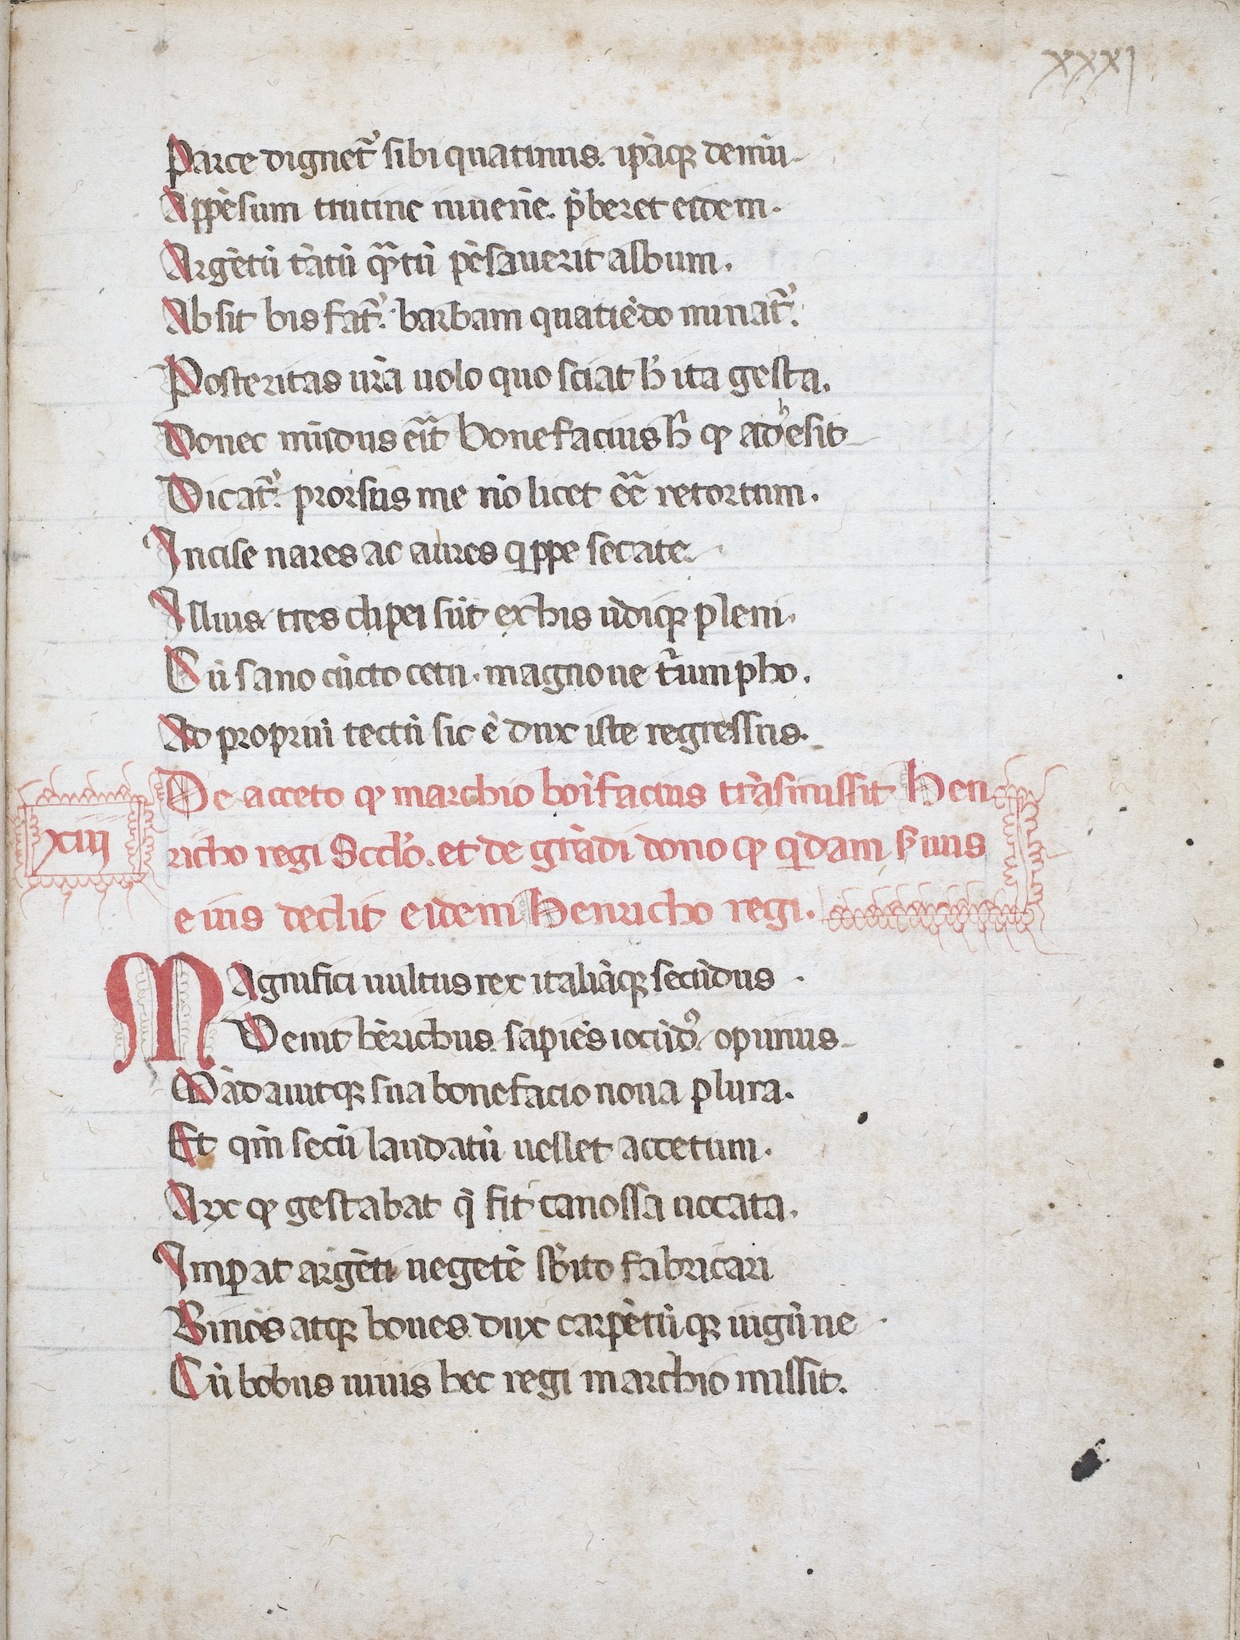 xxxj
Parce dignet᷑ sibi quatinus. ip̄aq̨ demū
Appēsum trutine niuerīe. p̄beret eidem.
Argētū tātū q̄ntū pēsauerit album.
Absit bis fat᷑. barbam quatiēdo minat᷑.
Posteritas ur̄a uolo quo sciat h̄ ita gesta.
Donec mūdus eīt bonefacius h̄ ꝙ adhesit
Dicat᷑. prorsus me nō licet eē̄ retortum.
Incise nares ac aures qippe secate.
Illius tres clipei sūt ex his ūdiq̨ pleni.
Cū sano cūcto cetu. magno ne triumpho.
Ad propriū tectū sic ē dux iste regressus.
xiij
De acceto ꝙ marchio boīfacius trāsmissit Hen
richo regi Scdo. et de grādi dono ꝙ qidam s̄uus
eius dedit eidem Henricho regi.
Magnifici uultus rex italiāq̨ secūdus
Venit hēricus sapiēs iocūdꝰ opimus
Mādauitq̨ sua bonefacio noua plura.
Et qm̄ secū laudatū uellet accetum.
Arx ꝙ gestabat q̄ fit canossa uocata.
Imꝑat argēti uegetē sb̄ito fabricari
Binos atq̨ boues dux carpētūq̨ iugūne
Cū bobus iuuis hec regi marchio missit.